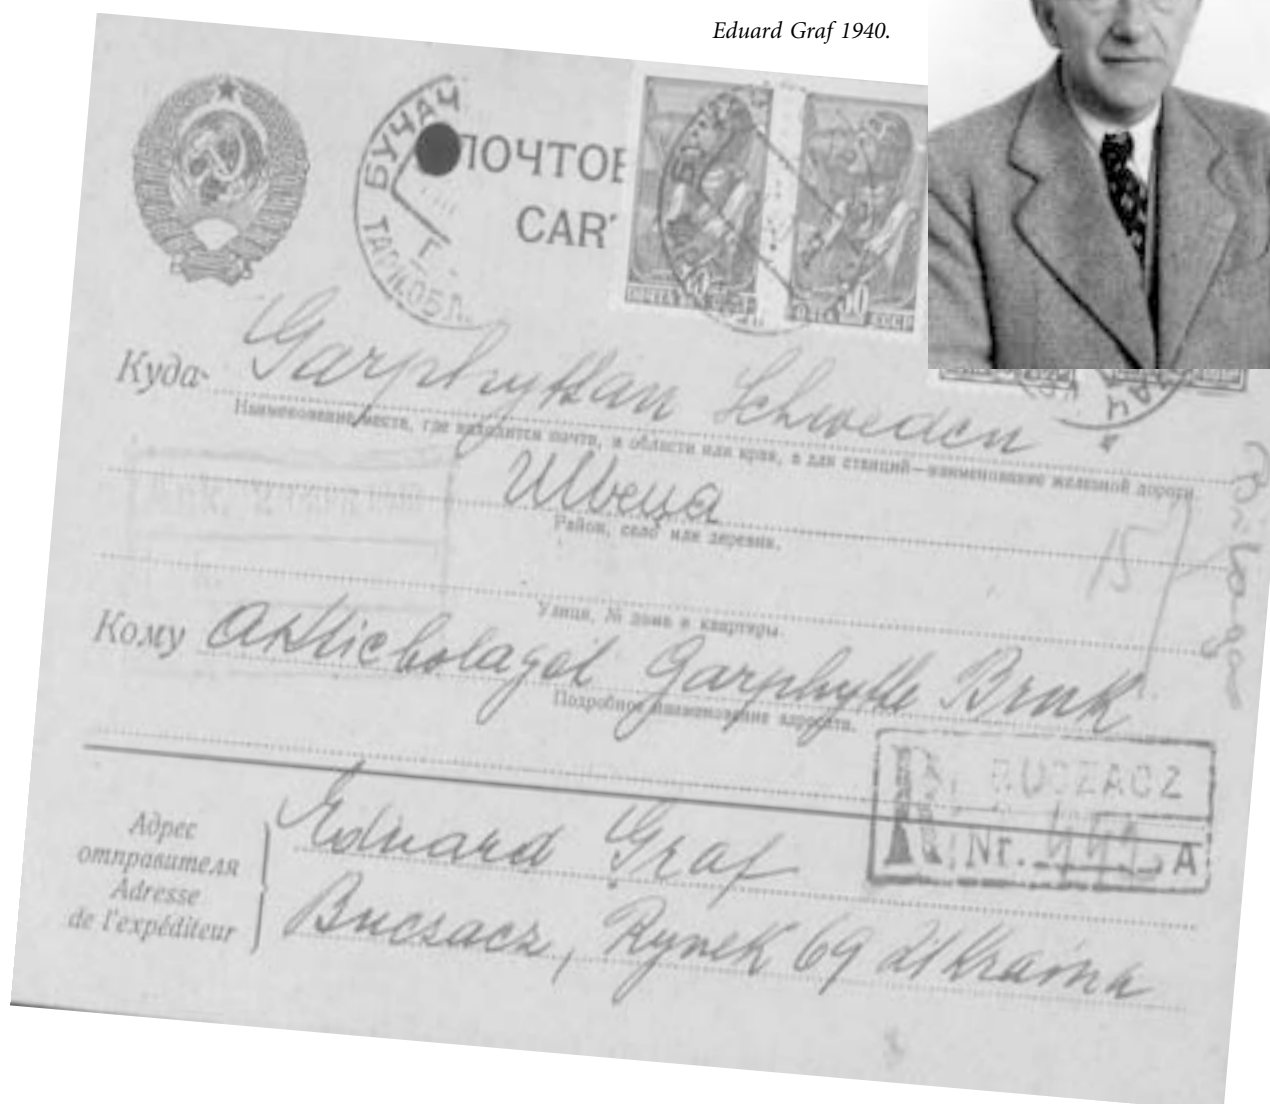 Eduard Graf 1940.
БУЧАЧ
ПОЧТОВ
CART
ПОЧТА СССР
Куда
Garphyttan Schweden
Наименование места, где находится почта, а области или края, а для станций—наименование железной дороги.
Швеца
Район, село или деревня.
15
Улица, № дома и квартиры.
Кому Aktiebolaget Garphytte Bruk
Подробное наименование адресата.
R BUCZACZ
Nr. A
Адрес
отправителя
Adresse
de l'expéditeur
Eduard Graf
Buczacz, Rynek 69 Ukraina